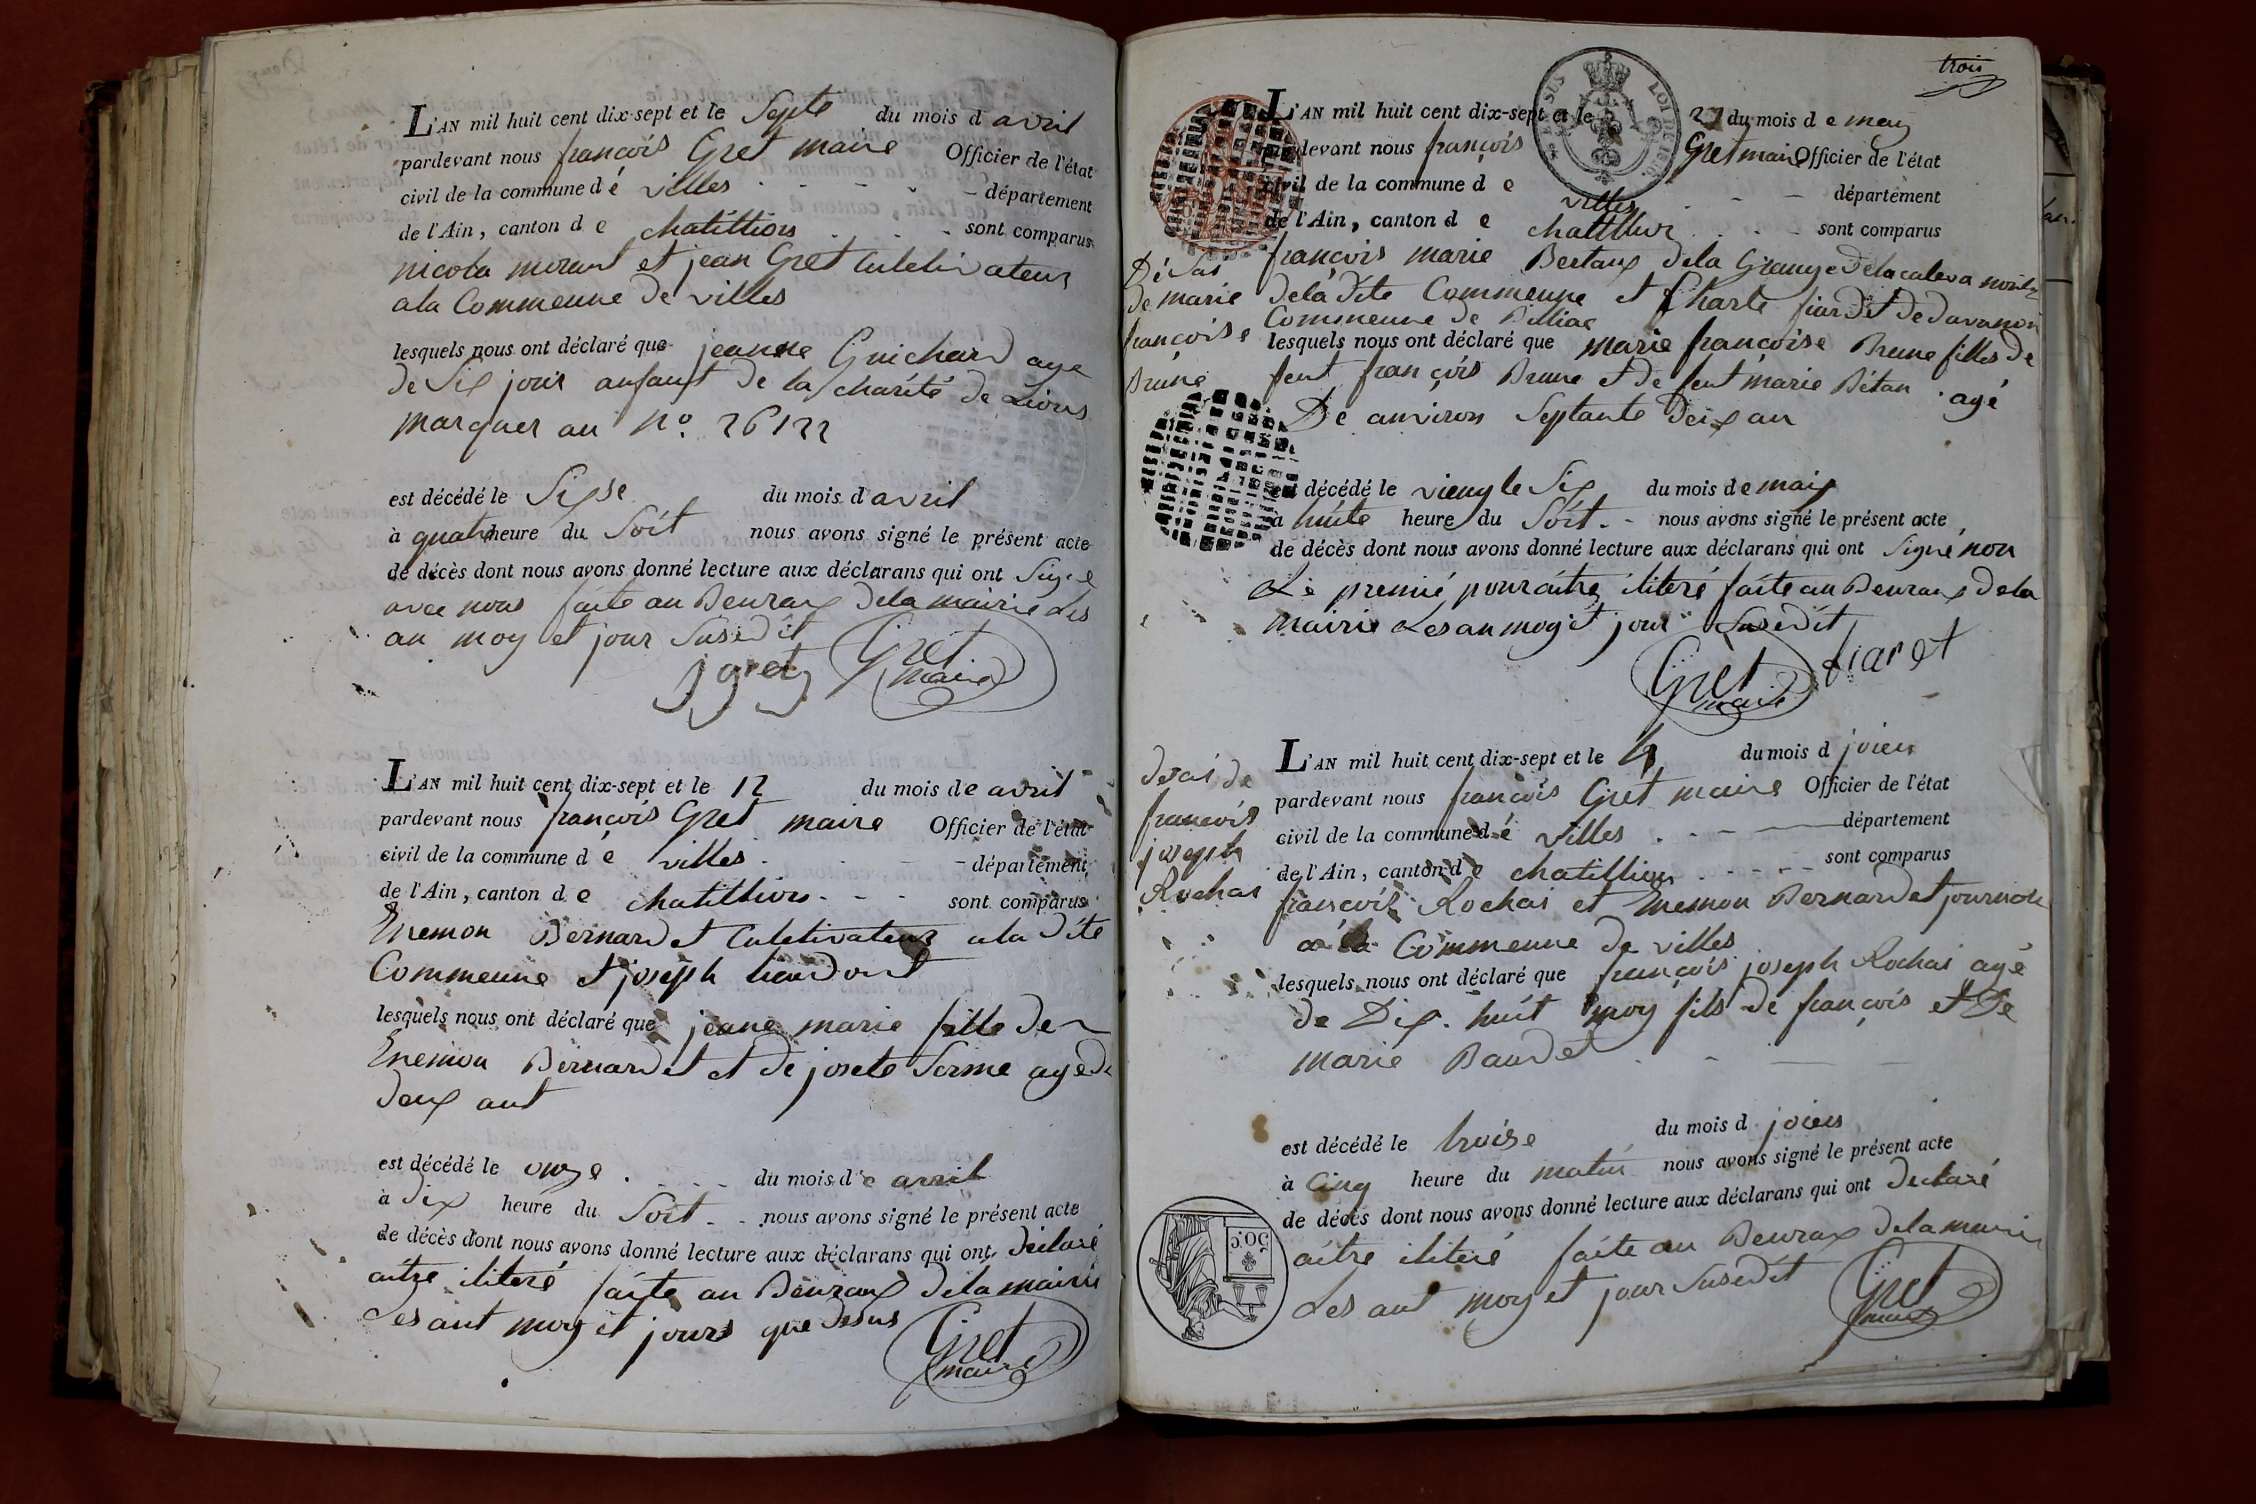 L'AN mil huit cent dix-sept et le Septe du mois d avril
pardevant nous françois Gret maire Officier de l'état
civil de la commune d é villes département
de l'Ain, canton d e chatillion sont comparus
nicola morant et jean Gret Culetivateur
ala Commeune de villes
lesquels nous ont déclaré que jeanne Guichard age
de Six jour anfant de la charité de Lions
marquer au N.o 26122
est décédé le Sixse du mois d avril
à quatre heure du Soit nous avons signé le présent acte
de décès dont nous avons donné lecture aux déclarans qui ont Signe
avec nous faite au Beuraux dela mairie Les
an moy et jour Susedit
jgret Gret
maire
L'AN mil huit cent dix-sept et le 12 du mois de avril
pardevant nous françois Gret maire Officier de l'état
civil de la commune d é villes département
de l'Ain, canton d e chatillion sont comparus
Enemon Bernardet Culetivateur ala dite
Commeune et joseph
lesquels nous ont déclaré que jeane marie fille de
Enemon Bernardet et de josete Serme agé de
deux ant
est décédé le onze du mois d e avril
à dix heure du Soit nous avons signé le présent acte
de décès dont nous avons donné lecture aux déclarans qui ont déclaré
aitre iliteré faite au Beuraux dela mairie
Les ant moy et jours que desus
Gret
maire
trois
LOI DE 1816
L'AN mil huit cent dix-sept et le 27 du mois d e may
pardevant nous françois Gret maire Officier de l'état
civil de la commune d e villes département
de l'Ain, canton d e chatillion sont comparus
françois marie Bertaux dela Grange
dela dite Commeune et Charle
Commeune de Billiac
lesquels nous ont déclaré que marie françoise Brune filles de
feut françois Brune et de feut marie Bétan agé
De anviron Septante deix an
est décédé le vieng le Six du mois de may
à huite heure du Soit nous avons signé le présent acte
de décès dont nous avons donné lecture aux déclarans qui ont Signé non
Le premié pour aitre iliteré faite au Beuraux dela
mairie Les an moy et jour Susedit
Gret
maire
Désai
de marie
françoise
Brune
L'AN mil huit cent dix-sept et le 4 du mois d joien
pardevant nous françois Gret maire Officier de l'état
civil de la commune d é villes département
de l'Ain, canton d e chatillion sont comparus
françois Rochai et Enemon Bernardet
a la Commeune de villes
lesquels nous ont déclaré que françois joseph Rochai agé
de Dix huit moy fils de françois et de
marie Baudet
est décédé le troise du mois d joien
à cinq heure du matin nous avons signé le présent acte
de décès dont nous avons donné lecture aux déclarans qui ont declaré
aitre iliteré faite au Beuraux dela mairie
Les ant moy et jour Susedit
Gret
maire
desai de
françois
joseph
Rochai
50.c